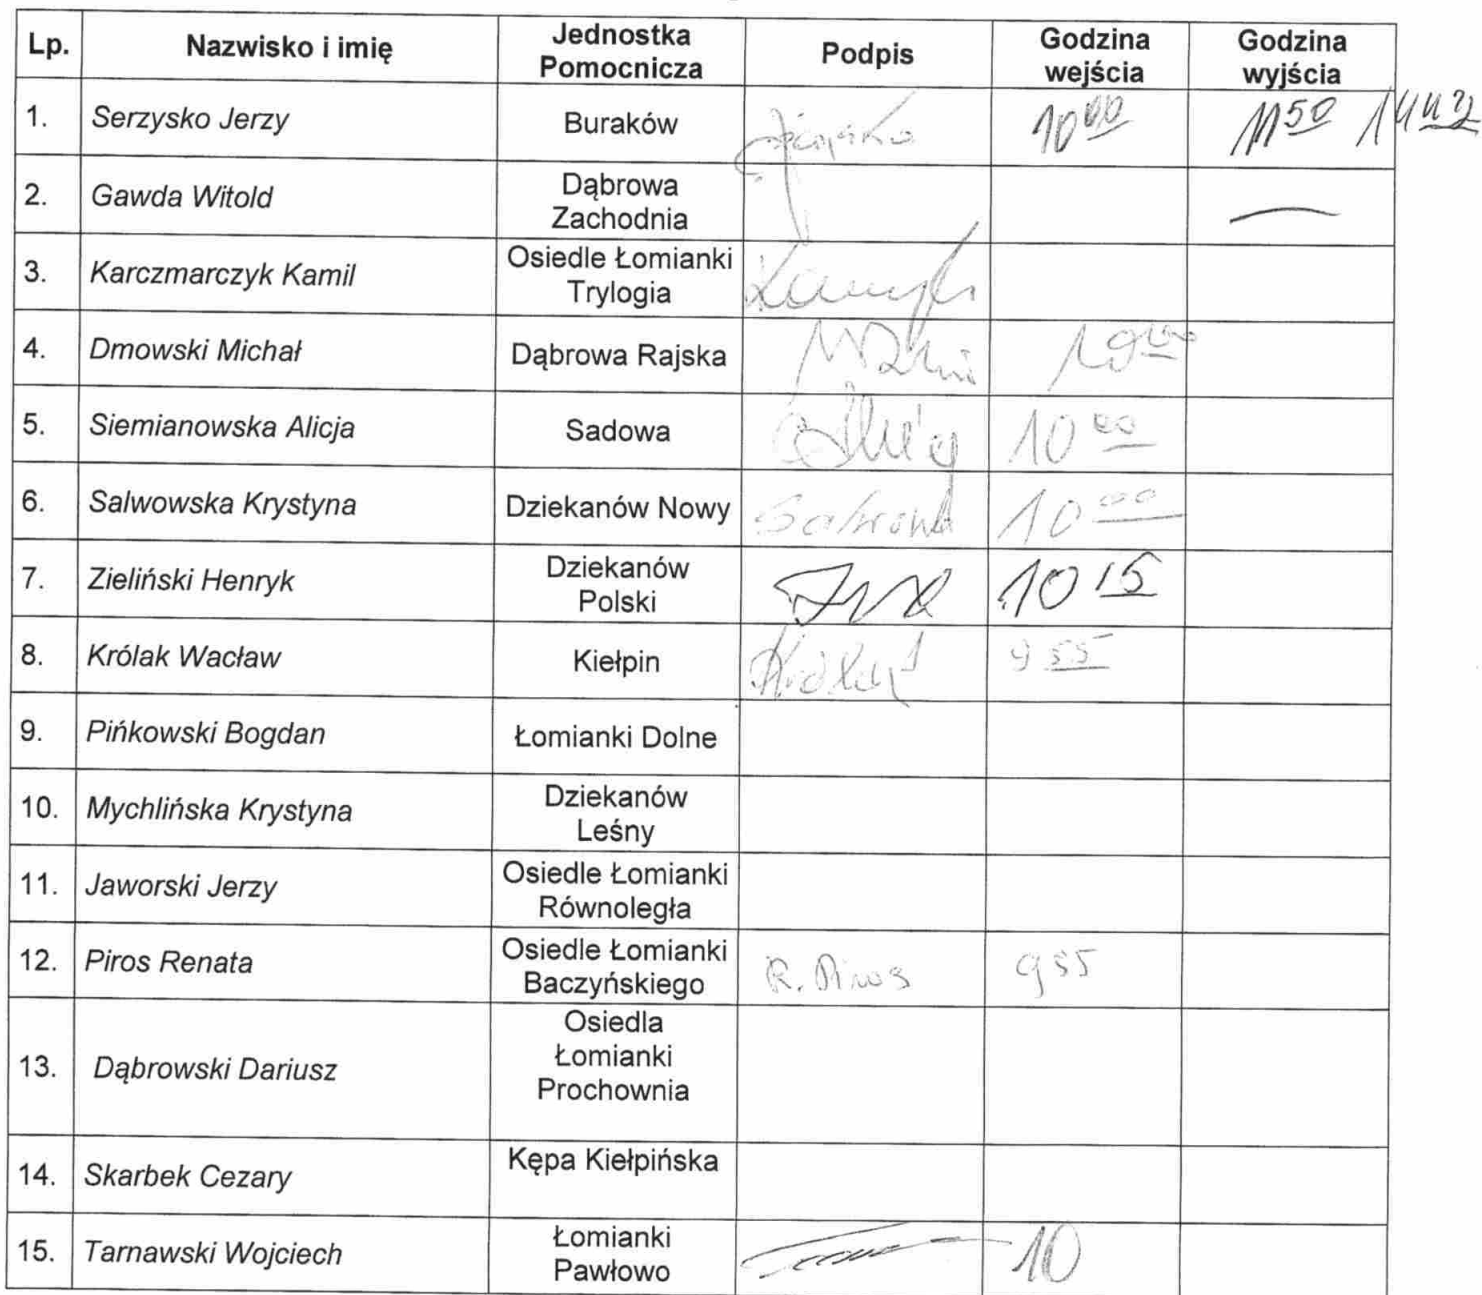 Lp. Nazwisko i imię Jednostka Pomocnicza Podpis Godzina wejścia Godzina wyjścia
1. Serzysko Jerzy Buraków 10 00 11 50
2. Gawda Witold Dąbrowa Zachodnia —
3. Karczmarczyk Kamil Osiedle Łomianki Trylogia
4. Dmowski Michał Dąbrowa Rajska 10 00
5. Siemianowska Alicja Sadowa 10 00
6. Salwowska Krystyna Dziekanów Nowy 10 00
7. Zieliński Henryk Dziekanów Polski 10 15
8. Królak Wacław Kiełpin 9 55
9. Pińkowski Bogdan Łomianki Dolne
10. Mychlińska Krystyna Dziekanów Leśny
11. Jaworski Jerzy Osiedle Łomianki Równoległa
12. Piros Renata Osiedle Łomianki Baczyńskiego R. Piros 9 55
13. Dąbrowski Dariusz Osiedla Łomianki Prochownia
14. Skarbek Cezary Kępa Kiełpińska
15. Tarnawski Wojciech Łomianki Pawłowo 10